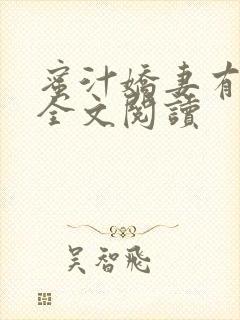 蜜汁嬌妻有
全文閱讀
吴智飛